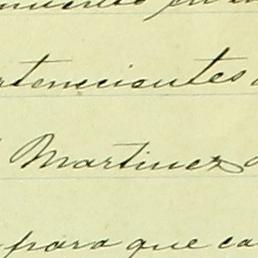 rtenecientes
Martinez
para que ca